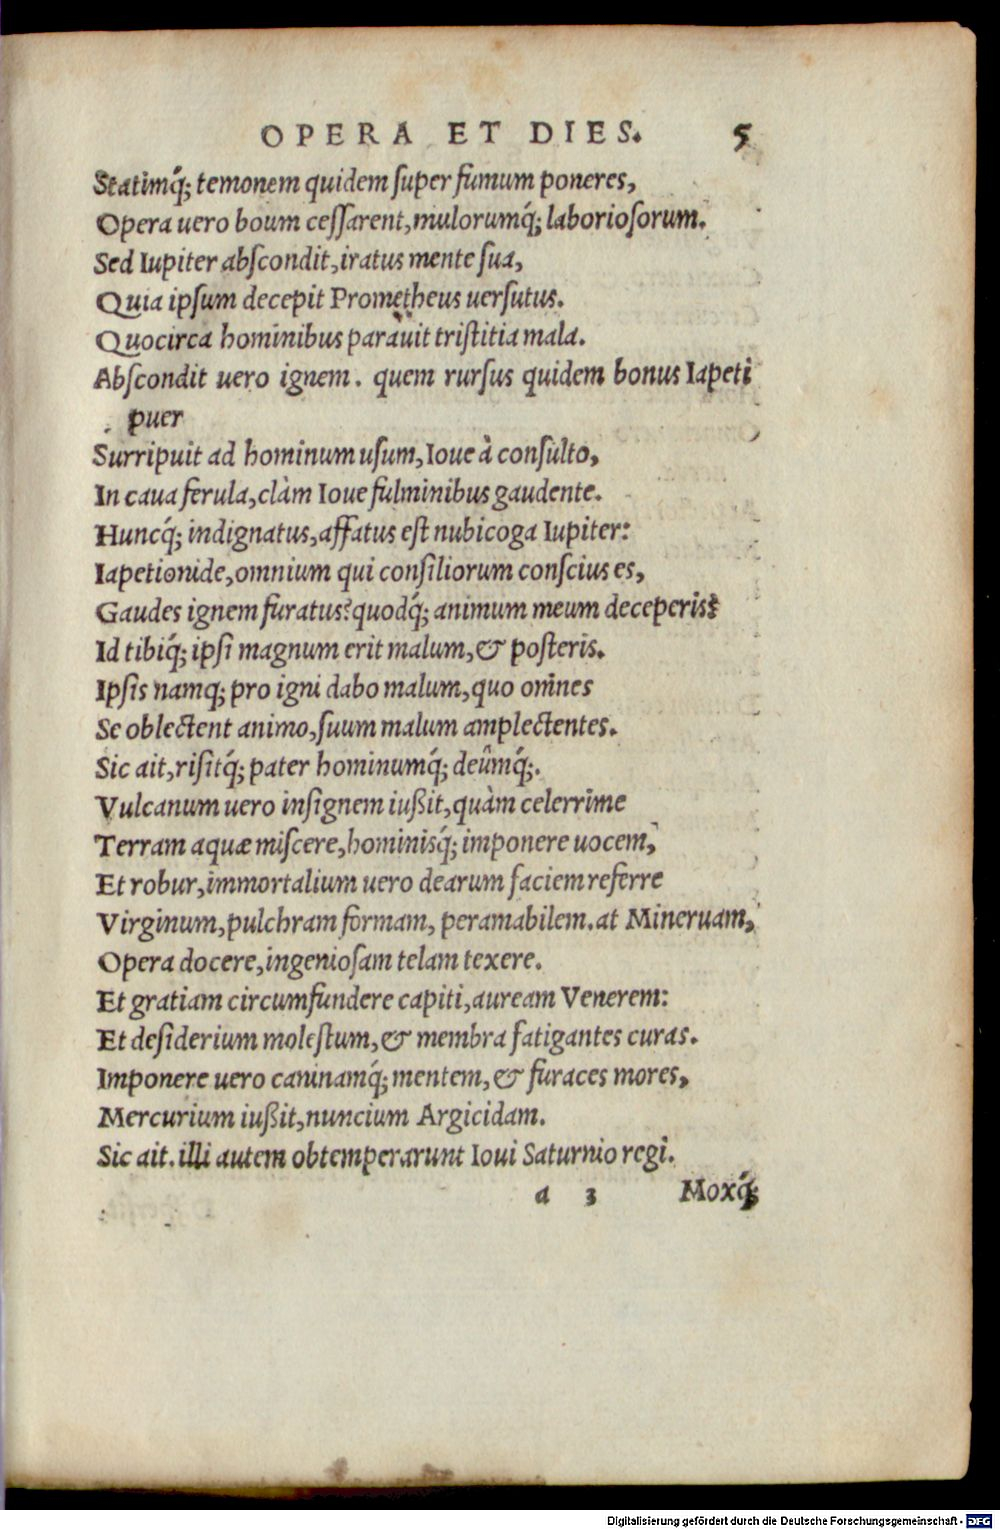 OPERA ET DIES. 5
Statimq́; temonem quidem ſuper fumum poneres,
Opera uero boum ceſſarent, mulorumq́; laborioſorum.
Sed Iupiter abſcondit, iratus mente ſua,
Quia ipſum decepit Prometheus uerſutus.
Quocirca hominibus parauit triſtitia mala.
Abſcondit uero ignem. quem rurſus quidem bonus Iapeti
puer
Surripuit ad hominum uſum, Ioue à conſulto,
In caua ferula, clàm Ioue fulminibus gaudente.
Huncq́; indignatus, affatus eſt nubicoga Iupiter:
Iapetionide, omnium qui conſiliorum conſcius es,
Gaudes ignem furatus? quodq́; animum meum deceperis?
Id tibiq́; ipſi magnum erit malum, & poſteris.
Ipſis namq; pro igni dabo malum, quo omnes
Se oblectent animo, ſuum malum amplectentes.
Sic ait, riſitq́; pater hominumq́; deûmq́;.
Vulcanum uero inſignem iußit, quàm celerrime
Terram aquæ miſcere, hominisq́; imponere uocem,
Et robur, immortalium uero dearum faciem referre
Virginum, pulchram formam, peramabilem. at Mineruam,
Opera docere, ingenioſam telam texere.
Et gratiam circumfundere capiti, auream Venerem:
Et deſiderium moleſtum, & membra fatigantes curas.
Imponere uero caninamq́; mentem, & furaces mores,
Mercurium iußit, nuncium Argicidam.
Sic ait. illi autem obtemperarunt Ioui Saturnio regi.
a 3 Moxq́;
Digitalisierung gefördert durch die Deutsche Forschungsgemeinschaft - DFG